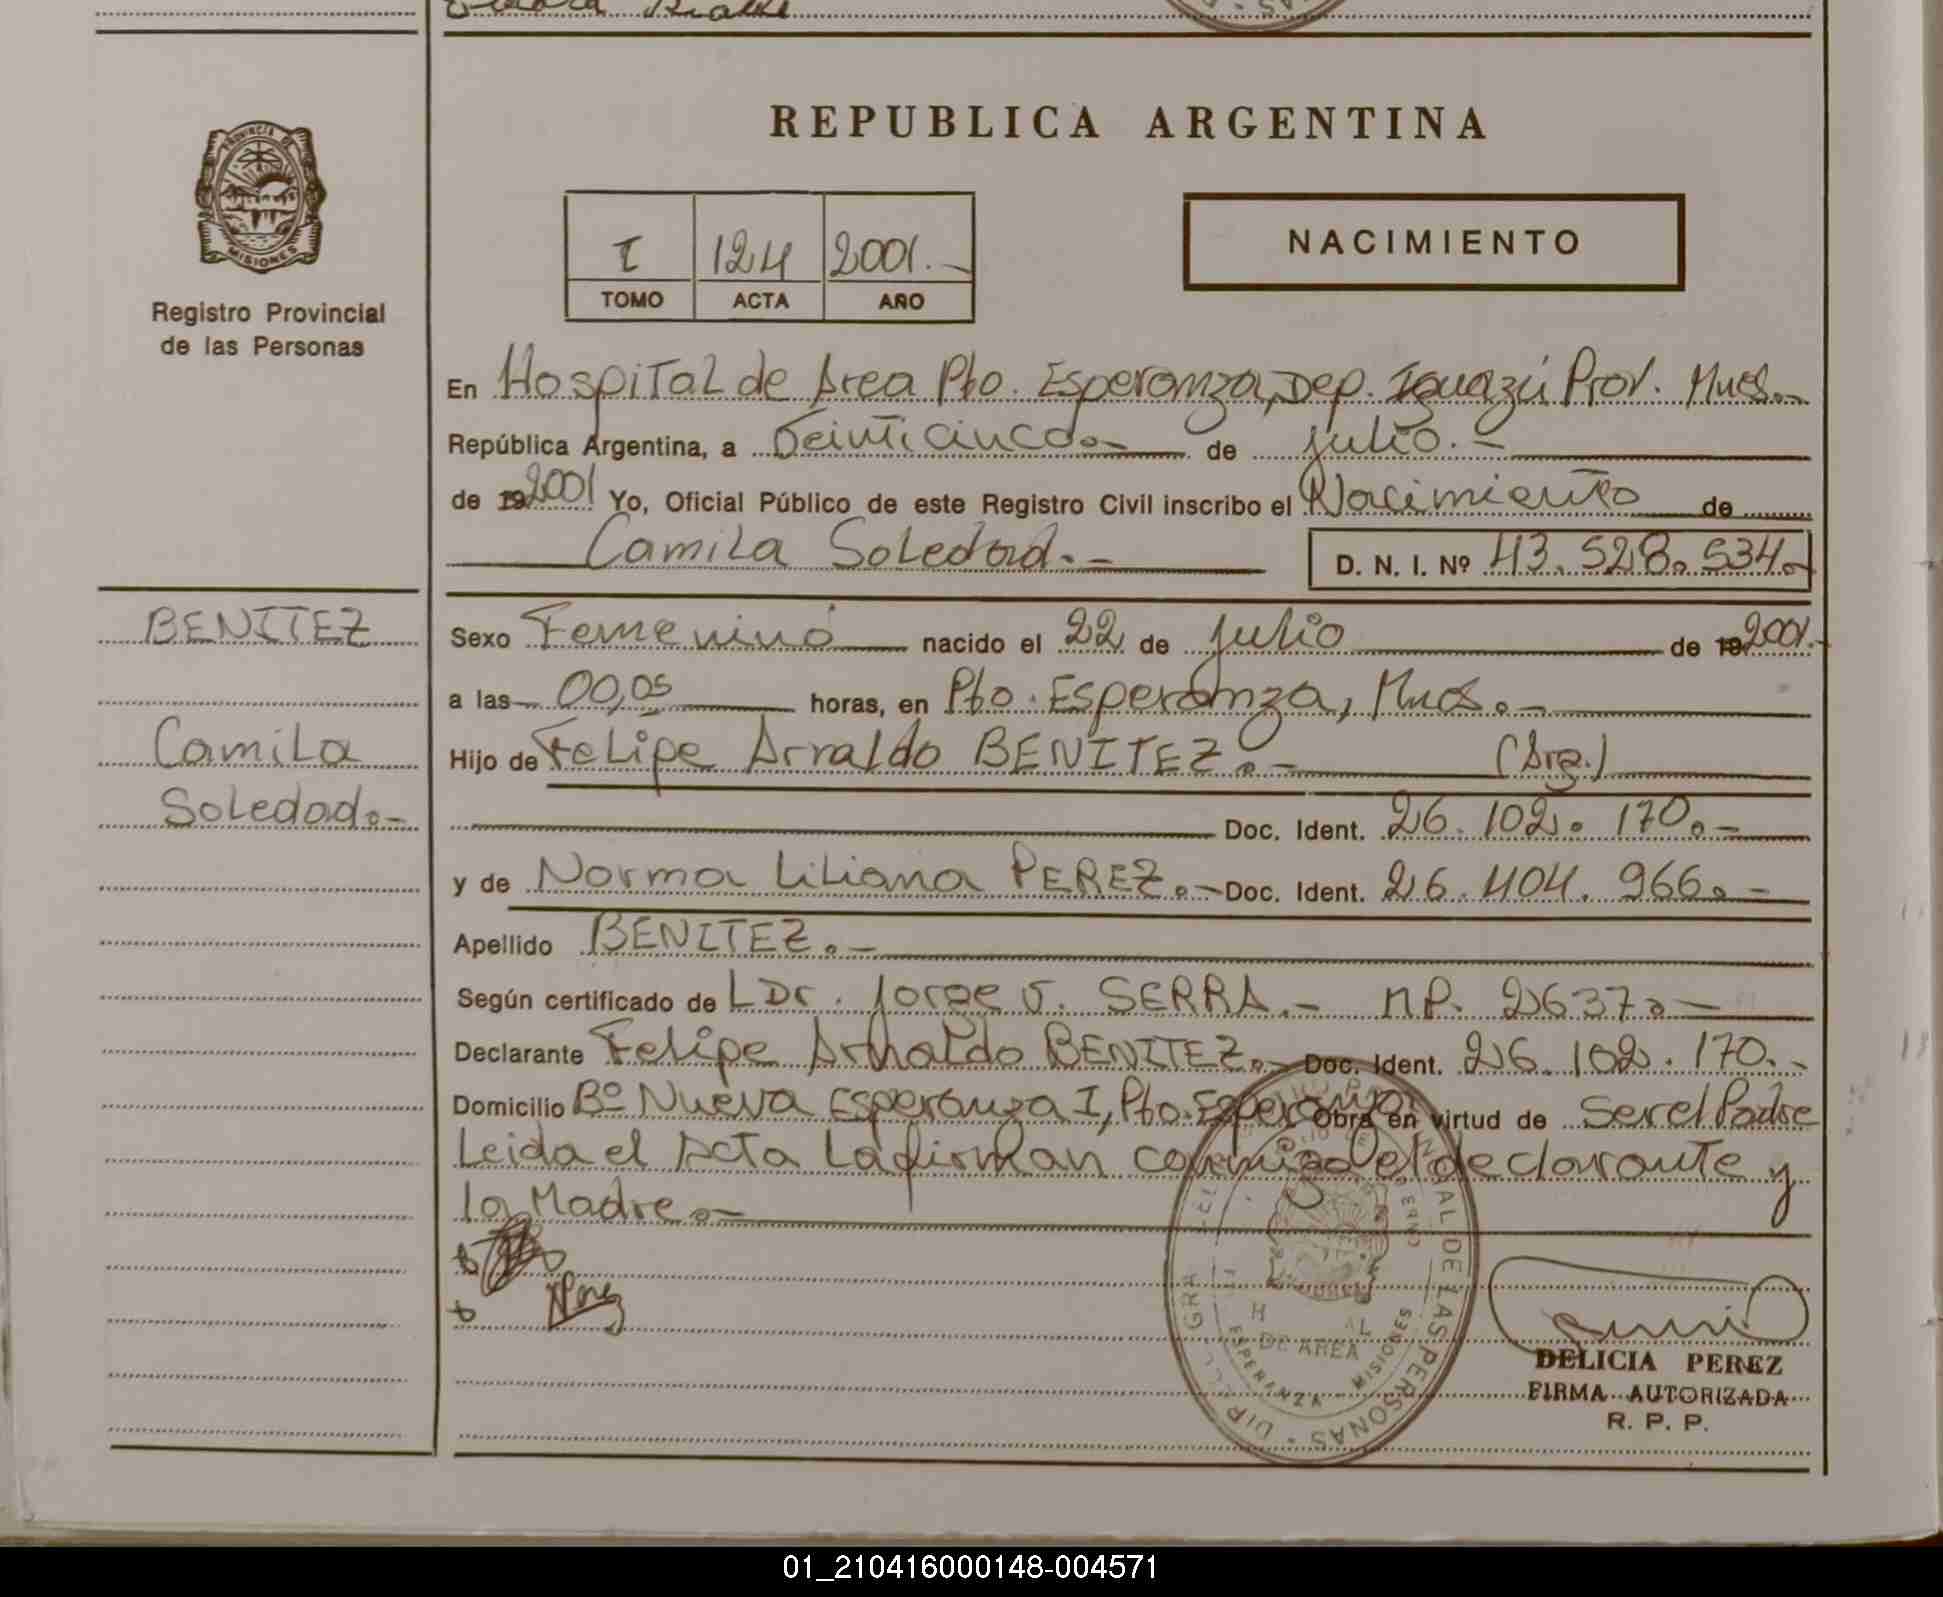 REPUBLICA ARGENTINA
PROVINCIA DE
MISIONES
Registro Provincial
de las Personas
I 124 2001.-
TOMO ACTA AÑO
NACIMIENTO
En Hospital de Area Pto. Esperanza, Dep. Iguazú Prov. Mnes.-
República Argentina, a Veinticinco.- de julio.-
de 19 2001 Yo, Oficial Público de este Registro Civil inscribo el Nacimiento de
Camila Soledad.- D. N. I. Nº 43.528.534.-
BENITEZ
Camila
Soledad.-
Sexo Femenino nacido el 22 de julio de 19 2001.-
a las 00,05 horas, en Pto. Esperanza, Mnes.-
Hijo de Felipe Arnaldo BENITEZ.- (Arg.)
Doc. Ident. 26.102.170.-
y de Norma Liliana PEREZ.- Doc. Ident. 26.404.966.-
Apellido BENITEZ.-
Según certificado de L Dr. Jorge V. SERRA.- MP. 2637.-
Declarante Felipe Arnaldo BENITEZ.- Doc. Ident. 26.102.170.-
Domicilio Bº Nueva Esperanza I, Pto. Esperanza Obra en virtud de Ser el Padre
Leida el Acta La firman conmigo el declarante y
la Madre.-
Perez
DE AREA
ESPERANZA - MISIONES
DELICIA PEREZ
FIRMA AUTORIZADA
R. P. P.
01_210416000148-004571